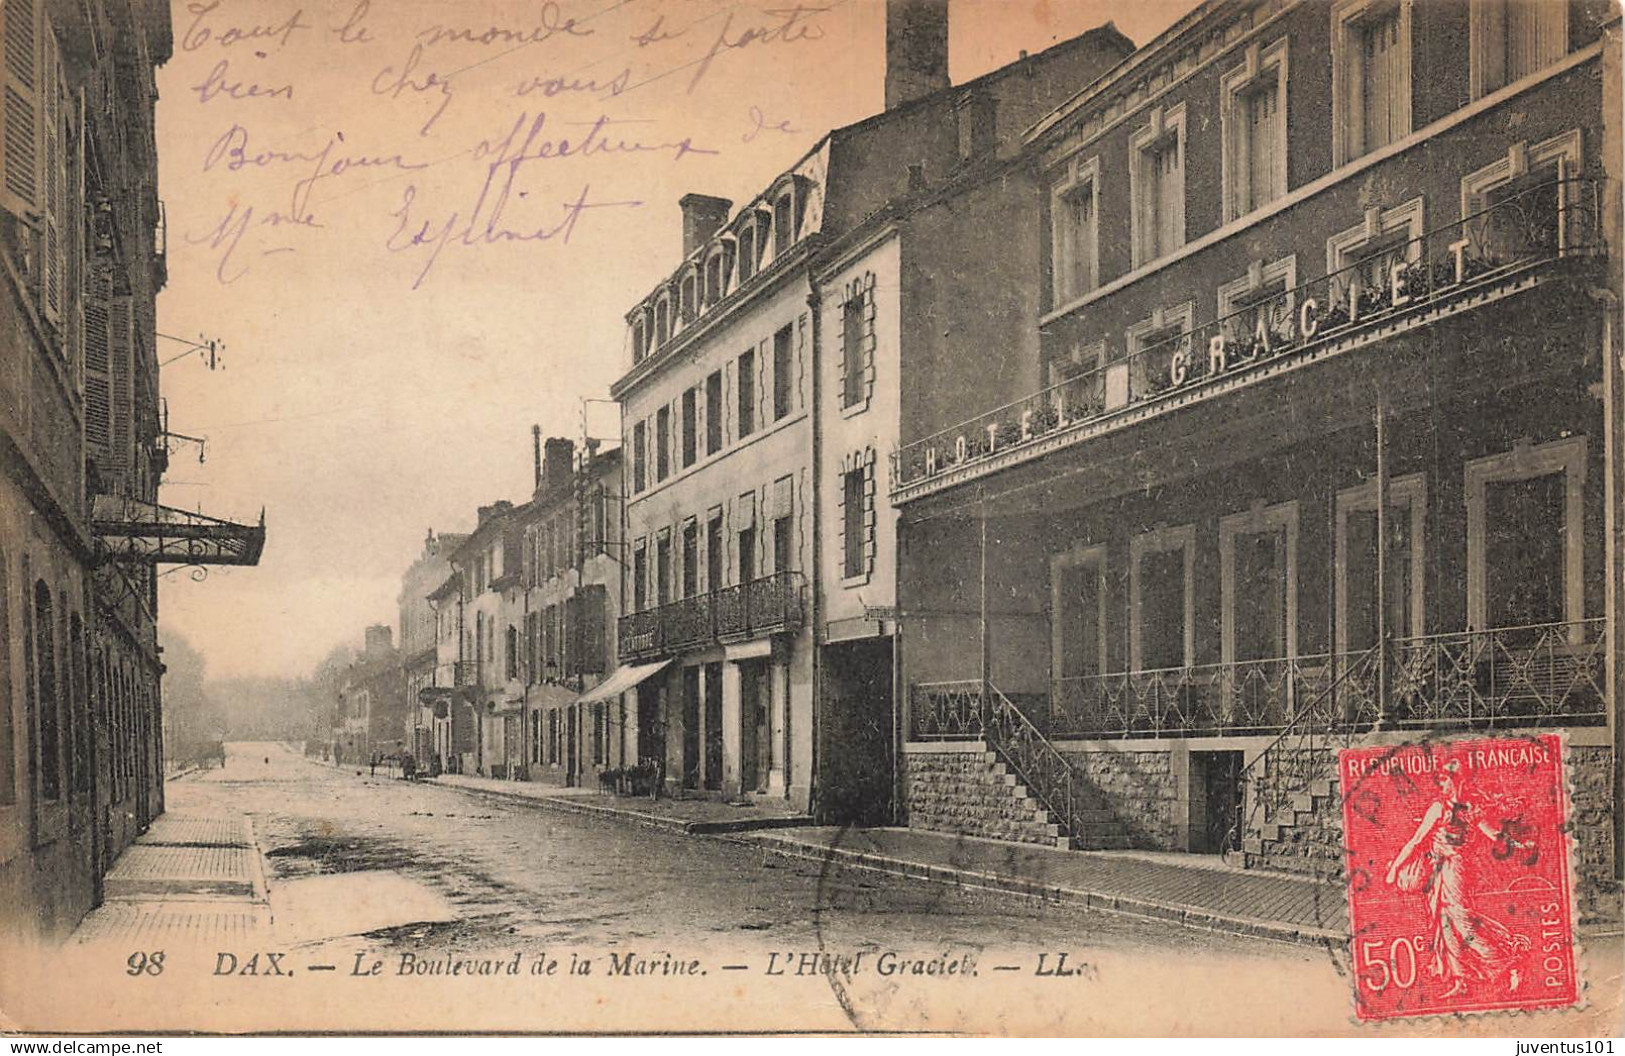 Tout le monde se porte
bien chez vous
Bonjour affectueux de
Mme Espinet
HOTEL GRACIET
REPUBLIQUE FRANÇAISE
50c
POSTES
98 DAX. — Le Boulevard de la Marine. — L'Hôtel Graciet. — LL.
www.delcampe.net
juventus101